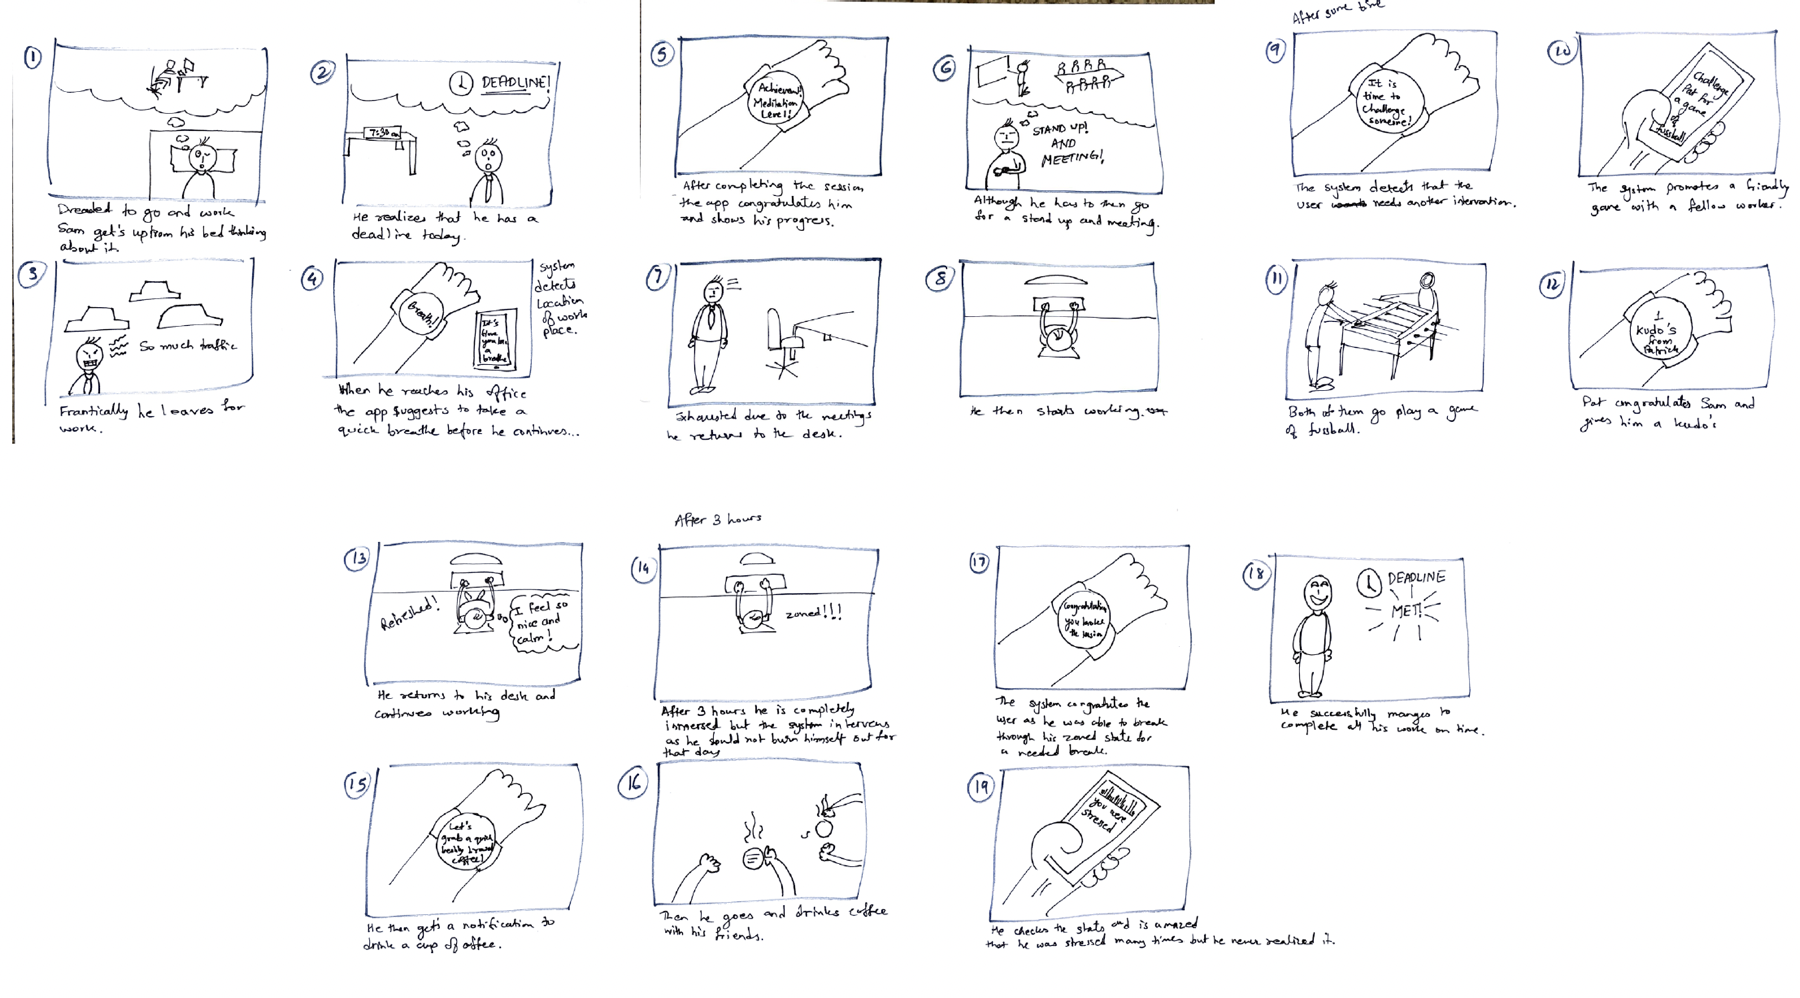 1
Dreaded to go and work
Sam get's up from his bed thinking
about it.
2
DEADLINE!
7:30 am
He realizes that he has a
deadline today.
3
So much traffic
Frantically he leaves for
work.
4
Breath!
It's
time
you
a
breathe
system
detects
Location
of work
place.
When he reaches his office
the app suggests to take a
quick breathe before he continues...
5
Achievement!
Meditation
Level!
After completing the session
the app congratulates him
and shows his progress.
6
STAND UP!
AND
MEETING!
Although he has to then go
for a stand up and meeting.
7
Exhausted due to the meetings
he returns to the desk.
8
He then starts working.
After some time
9
It is
time to
challenge
someone!
The system detects that the
user needs another intervention.
10
Challenge
Pat for
a game
of
fussball
The system promotes a friendly
game with a fellow worker.
11
Both of them go play a game
of fussball.
12
1
Kudo's
from
Patrick
Pat congratulates Sam and
gives him a kudo's
13
Refreshed!
I feel so
nice and
calm!
He returns to his desk and
continues working
After 3 hours
14
zoned!!!
After 3 hours he is completely
immersed but the system intervens
as he sould not burn himself out for
that day
15
Let's
grab a quick
brewed
coffee!
He then gets a notification to
drink a cup of coffee.
16
Then he goes and drinks coffee
with his friends.
17
Congratulation
you broke
the
The system congratulates the
user as he was able to break
through his zoned state for
a needed break.
18
DEADLINE
MET!
He successfully manges to
complete all his work on time.
19
you were
stressed
He checks the stats and is amazed
that he was stressed many times but he never realized it.